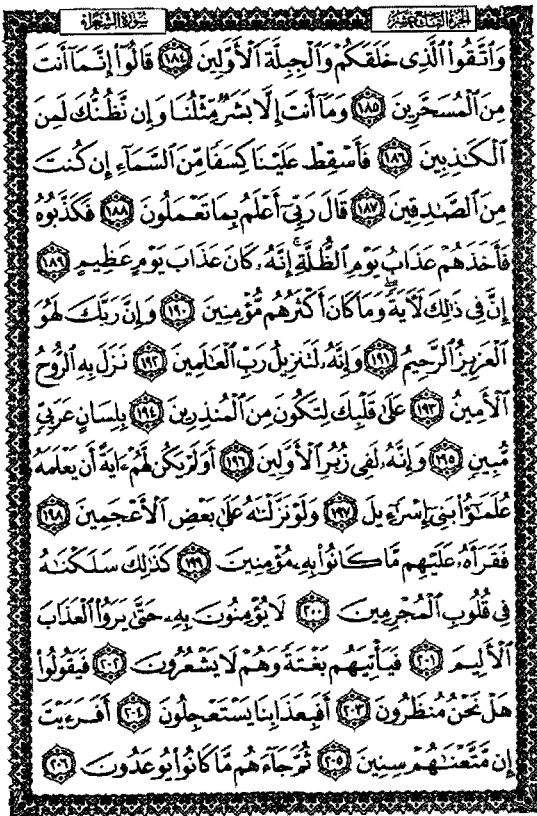 سُورَةُ الشُّعَرَاءِ
الجُزْءُ التَّاسِعَ عَشَر
وَاتَّقُوا الَّذِي خَلَقَكُمْ وَالْجِبِلَّةَ الْأَوَّلِينَ ۝١٨٤ قَالُوا إِنَّمَا أَنتَ
مِنَ الْمُسَحَّرِينَ ۝١٨٥ وَمَا أَنتَ إِلَّا بَشَرٌ مِّثْلُنَا وَإِن نَّظُنُّكَ لَمِنَ
الْكَاذِبِينَ ۝١٨٦ فَأَسْقِطْ عَلَيْنَا كِسَفًا مِّنَ السَّمَاءِ إِن كُنتَ
مِنَ الصَّادِقِينَ ۝١٨٧ قَالَ رَبِّي أَعْلَمُ بِمَا تَعْمَلُونَ ۝١٨٨ فَكَذَّبُوهُ
فَأَخَذَهُمْ عَذَابُ يَوْمِ الظُّلَّةِ ۚ إِنَّهُ كَانَ عَذَابَ يَوْمٍ عَظِيمٍ ۝١٨٩
إِنَّ فِي ذَٰلِكَ لَآيَةً ۖ وَمَا كَانَ أَكْثَرُهُم مُّؤْمِنِينَ ۝١٩٠ وَإِنَّ رَبَّكَ لَهُوَ
الْعَزِيزُ الرَّحِيمُ ۝١٩١ وَإِنَّهُ لَتَنزِيلُ رَبِّ الْعَالَمِينَ ۝١٩٢ نَزَلَ بِهِ الرُّوحُ
الْأَمِينُ ۝١٩٣ عَلَىٰ قَلْبِكَ لِتَكُونَ مِنَ الْمُنذِرِينَ ۝١٩٤ بِلِسَانٍ عَرَبِيٍّ
مُّبِينٍ ۝١٩٥ وَإِنَّهُ لَفِي زُبُرِ الْأَوَّلِينَ ۝١٩٦ أَوَلَمْ يَكُن لَّهُمْ ءَايَةً أَن يَعْلَمَهُ
عُلَمَٰٓؤُا بَنِي إِسْرَٰٓءِيلَ ۝١٩٧ وَلَوْ نَزَّلْنَٰهُ عَلَىٰ بَعْضِ الْأَعْجَمِينَ ۝١٩٨
فَقَرَأَهُ عَلَيْهِم مَّا كَانُوا بِهِ مُؤْمِنِينَ ۝١٩٩ كَذَٰلِكَ سَلَكْنَٰهُ
فِي قُلُوبِ الْمُجْرِمِينَ ۝٢٠٠ لَا يُؤْمِنُونَ بِهِ حَتَّىٰ يَرَوُا الْعَذَابَ
الْأَلِيمَ ۝٢٠١ فَيَأْتِيَهُم بَغْتَةً وَهُمْ لَا يَشْعُرُونَ ۝٢٠٢ فَيَقُولُوا
هَلْ نَحْنُ مُنظَرُونَ ۝٢٠٣ أَفَبِعَذَابِنَا يَسْتَعْجِلُونَ ۝٢٠٤ أَفَرَءَيْتَ
إِن مَّتَّعْنَٰهُمْ سِنِينَ ۝٢٠٥ ثُمَّ جَاءَهُم مَّا كَانُوا يُوعَدُونَ ۝٢٠٦